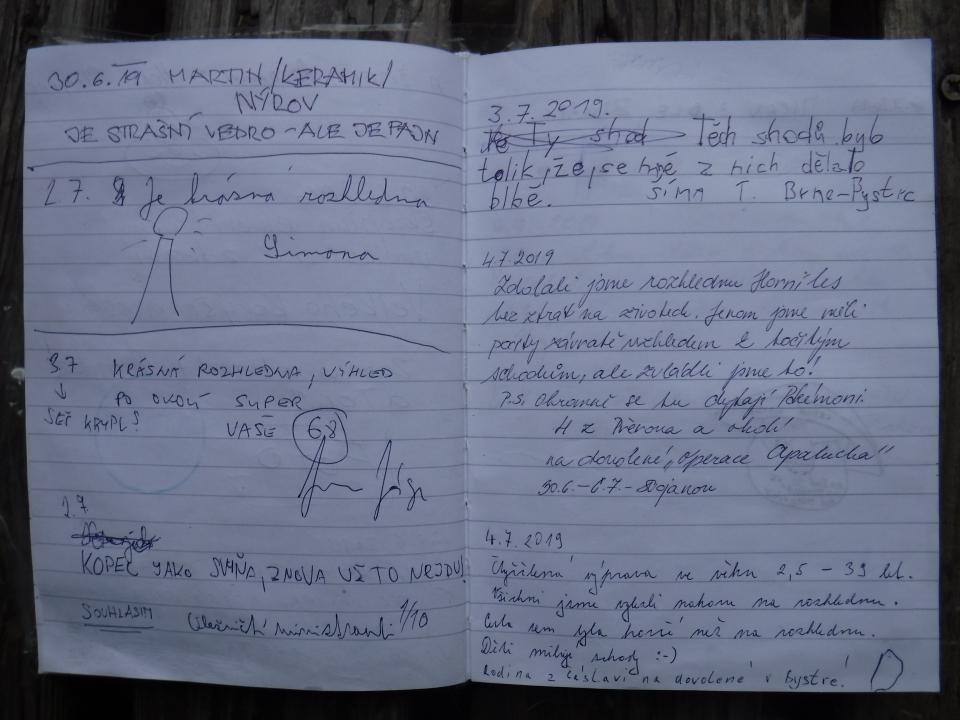 30.6.19 MARTIN /KERAMIK/
NÝROV
JE STRAŠNÍ VEDRO - ALE JE FAJN
2.7. Je krásná rozhledna
Simona
3.7 KRÁSNÁ ROZHLEDNA, VÝHLED
PO OKOLÍ SUPER
SEŠ KRYPL?
VAŠE 68
2.7
KOPEC JAKO SVIŇA, ZNOVA UŽ TO NEJDU!
SOUHLASIM
ministranti 1/10
3.7.2019.
Ty shod Těch shodů byb
tolik, že, se mně z nich dělalo
blbě. T. Brno-Bystrc
4.7.2019
Zdolali jsme rozhlednu Horní les
bez ztrát na životech. Jenom jsme měli
pocity závratě vzhledem k točitým
schodům, ale zvládli jsme to!
P.S. Ohromně se tu chytají Pokémoni
4 z Přerova a okolí
na dovolené, "operace Apalucha"
30.6.-6.7.-Trpín
4.7.2019
výprava ve věku 2,5 - 39 let.
Všichni jsme vylezli nahoru na rozhlednu.
Cesta sem byla horší než na rozhlednu.
Děti milují schody :-)
Rodina z Čáslavi na dovolené v Bystré!